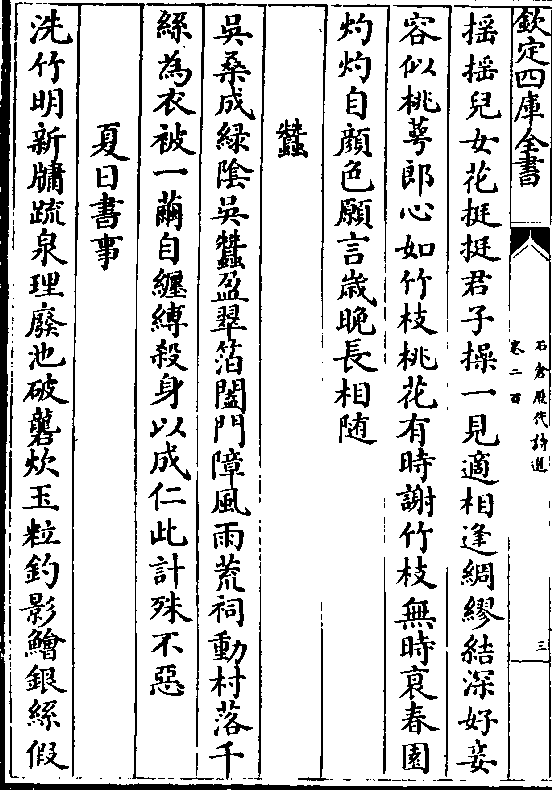 欽定四庫全書
石倉歷代詩選
卷二百
三
搖搖兒女花挺挺君子操一見適相逢綢繆結深好妾
容似桃萼郎心如竹枝桃花有時謝竹枝無時衰春園
灼灼自顔色願言歳晚長相随
蠶
吳桑成綠陰吳蠶盈翠箔闔門障風雨荒祠動村落千
絲為衣被一繭自纒縛殺身以成仁此計殊不惡
夏日書事
洗竹明新牗疏泉理廢池破礱炊玉粒釣影鱠銀絲假